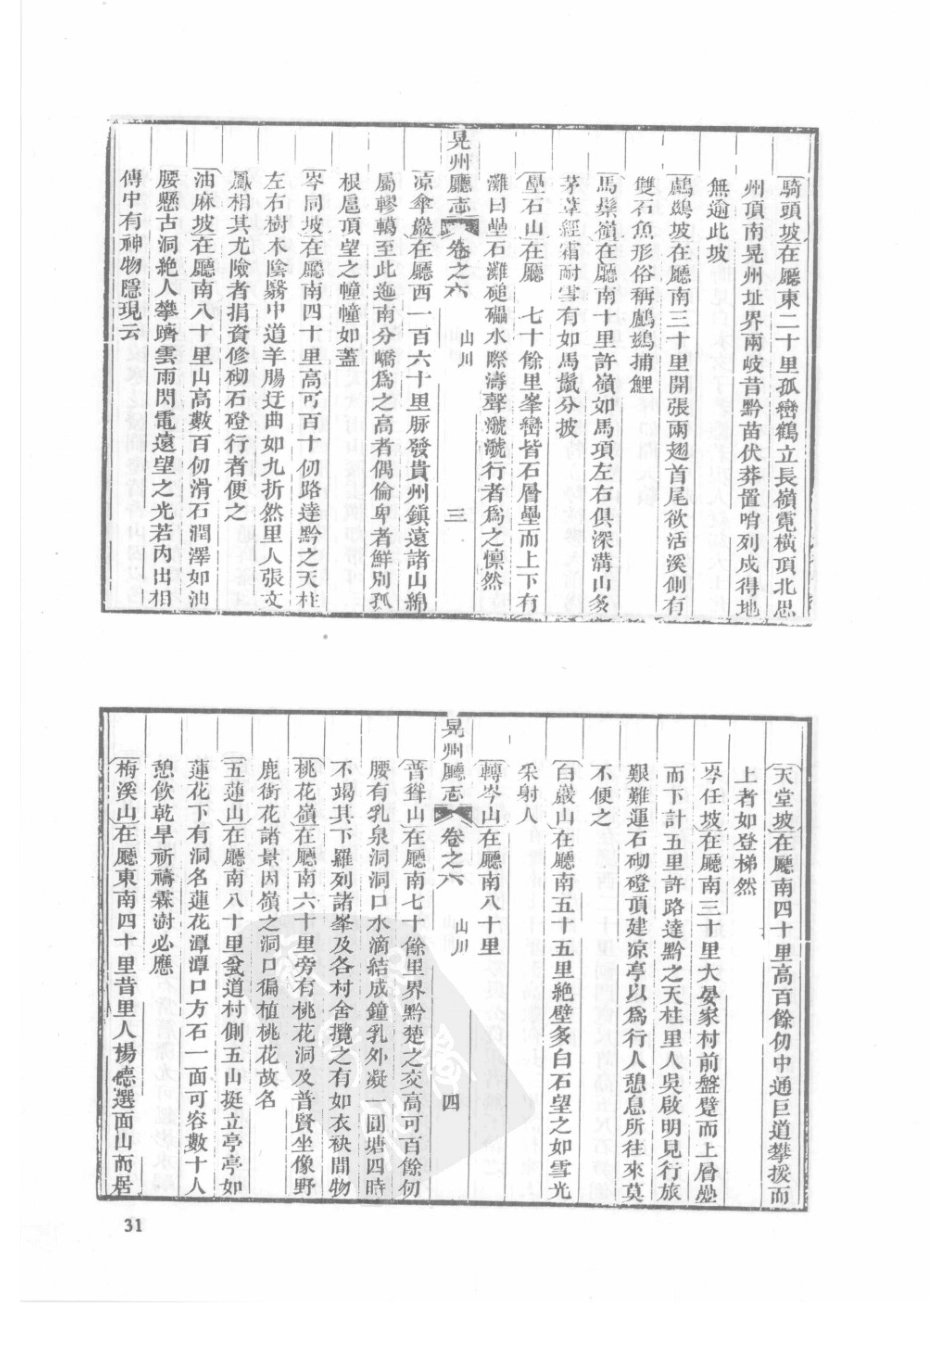 騎頭坡在廳東二十里孤巒鶴立長嶺霓橫頂北思
州頂南晃州址界兩岐昔黔苗伏莽置哨列戍得地
無逾此坡
鸕鷀坡在廳南三十里開張兩翅首尾欲活溪側有
雙石魚形俗稱鸕鷀捕鯉
馬鬃嶺在廳南十里許嶺如馬項左右俱深溝山多
茅葦經霜耐雪有如馬鬣分披
壘石山在廳 七十餘里峯巒皆石層壘而上下有
灘曰壘石灘磓磖水際濤聲㶁㶁行者爲之懍然
晃州廳志 卷之六 山川 三
凉傘巖在廳西一百六十里脈發貴州鎮遠諸山綿
屬轇轕至此迤南分嶓爲之高者偶倫卑者鮮別孤
根扈頂望之幢幢如蓋
岑同坡在廳南四十里高可百十仞路達黔之天柱
左右樹木陰翳中道羊腸迂曲如九折然里人張文
鳳相其尤險者捐資修砌石磴行者便之
油麻坡在廳南八十里山高數百仞滑石潤澤如油
腰懸古洞絶人攀躋雲雨閃電遠望之光若內出相
傳中有神物隱現云
天堂坡在廳南四十里高百餘仞中通巨道攀援而
上者如登梯然
岑任坡在廳南三十里大晏家村前盤躄而上層壘
而下計五里許路達黔之天柱里人吳啟明見行旅
艱難運石砌磴頂建凉亭以爲行人憩息所往來莫
不便之
白巖山在廳南五十五里絶壁多白石望之如雪光
采射人
轉岑山在廳南八十里
晃州廳志 卷之六 山川 四
普聳山在廳南七十餘里界黔楚之交高可百餘仞
腰有乳泉洞洞口水滴結成鐘乳外凝一圓塘四時
不竭其下羅列諸峯及各村舍攬之有如衣袂間物
桃花嶺在廳南六十里旁有桃花洞及普賢坐像野
鹿銜花諸景因嶺之洞口徧植桃花故名
五蓮山在廳南八十里叟道村側五山挺立亭亭如
蓮花下有洞名蓮花潭潭口方石一面可容數十人
憩飲乾旱祈禱霖澍必應
梅溪山在廳東南四十里昔里人楊德選面山而居
31